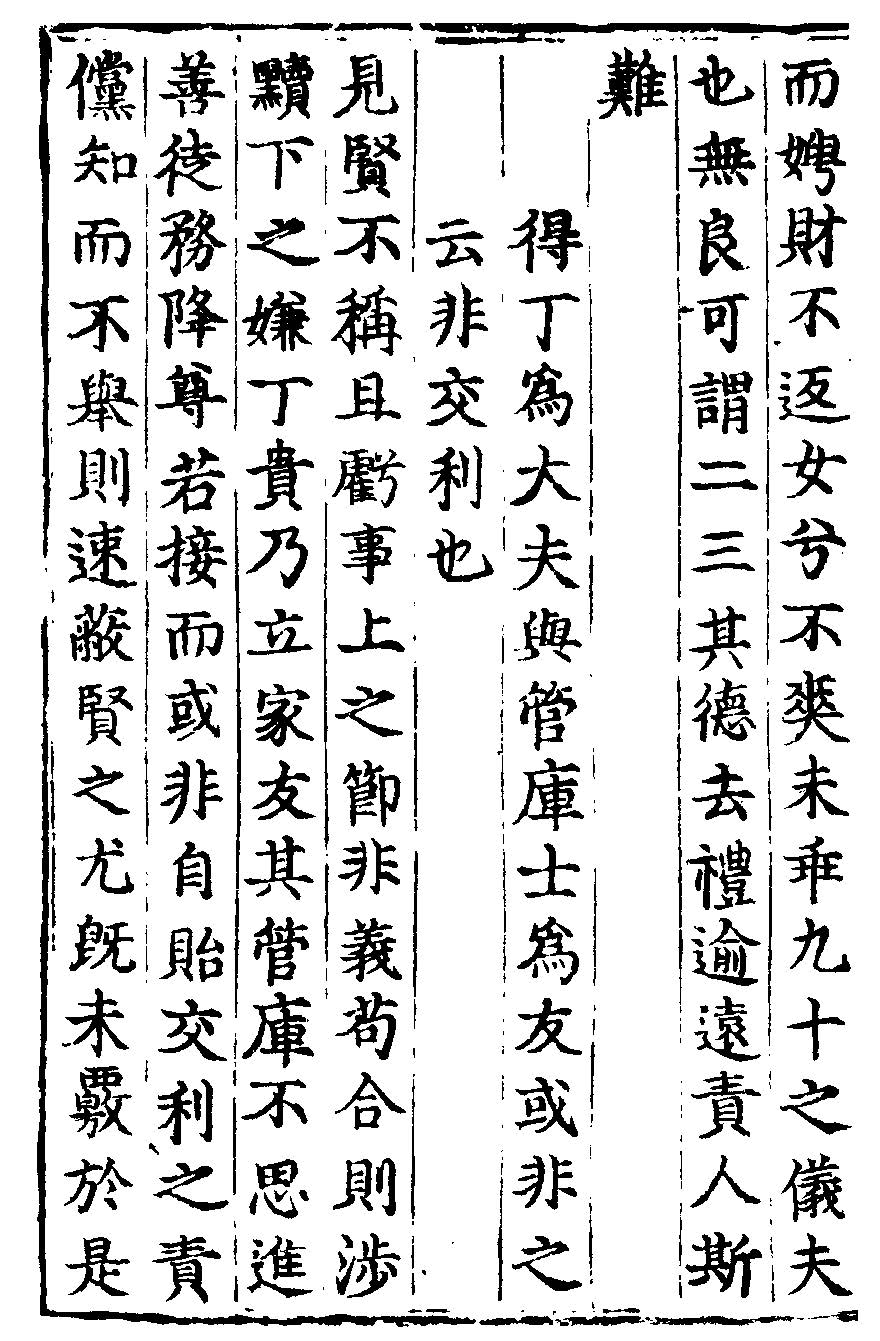 而娉財不返女兮不爽未乖九十之儀夫
也無良可謂二三其德去禮逾遠責人斯
難
得丁為大夫與管庫士為友或非之
云非交利也
見賢不稱且虧事上之節非義苟合則涉
黷下之嫌丁貴乃立家友其管庫不思進
善徒務降尊若接而或非自貽交利之責
儻知而不舉則速蔽賢之尤既未覈於是